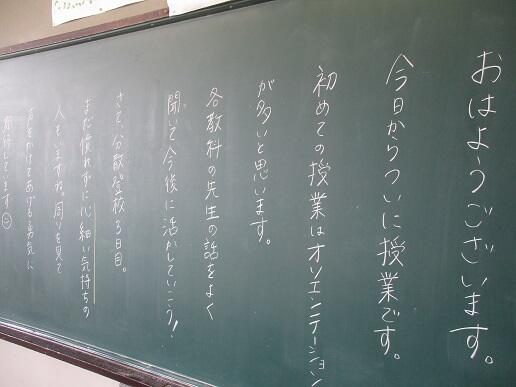 おはようございます。
今日からついに授業です。
初めての授業はオリエンテーション
が多いと思います。
各教科の先生の話をよく
聞いて今後に活かしていこう!
さて、分散登校3日目。
まだ慣れずに心細い気持ちの
人もいますね。周りを見て
声をかけてあげる勇気に
期待しています